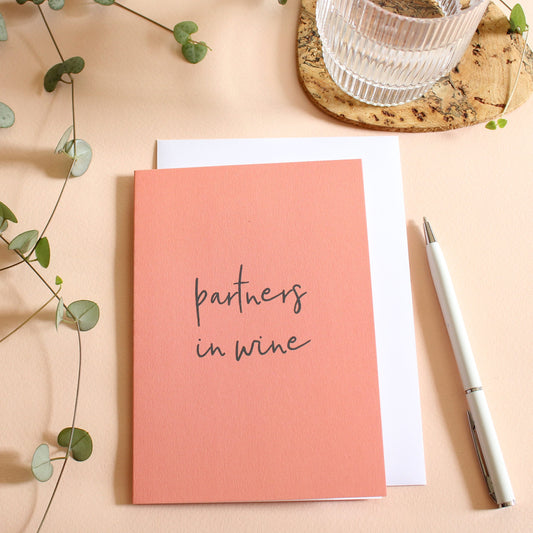 partners
in wine